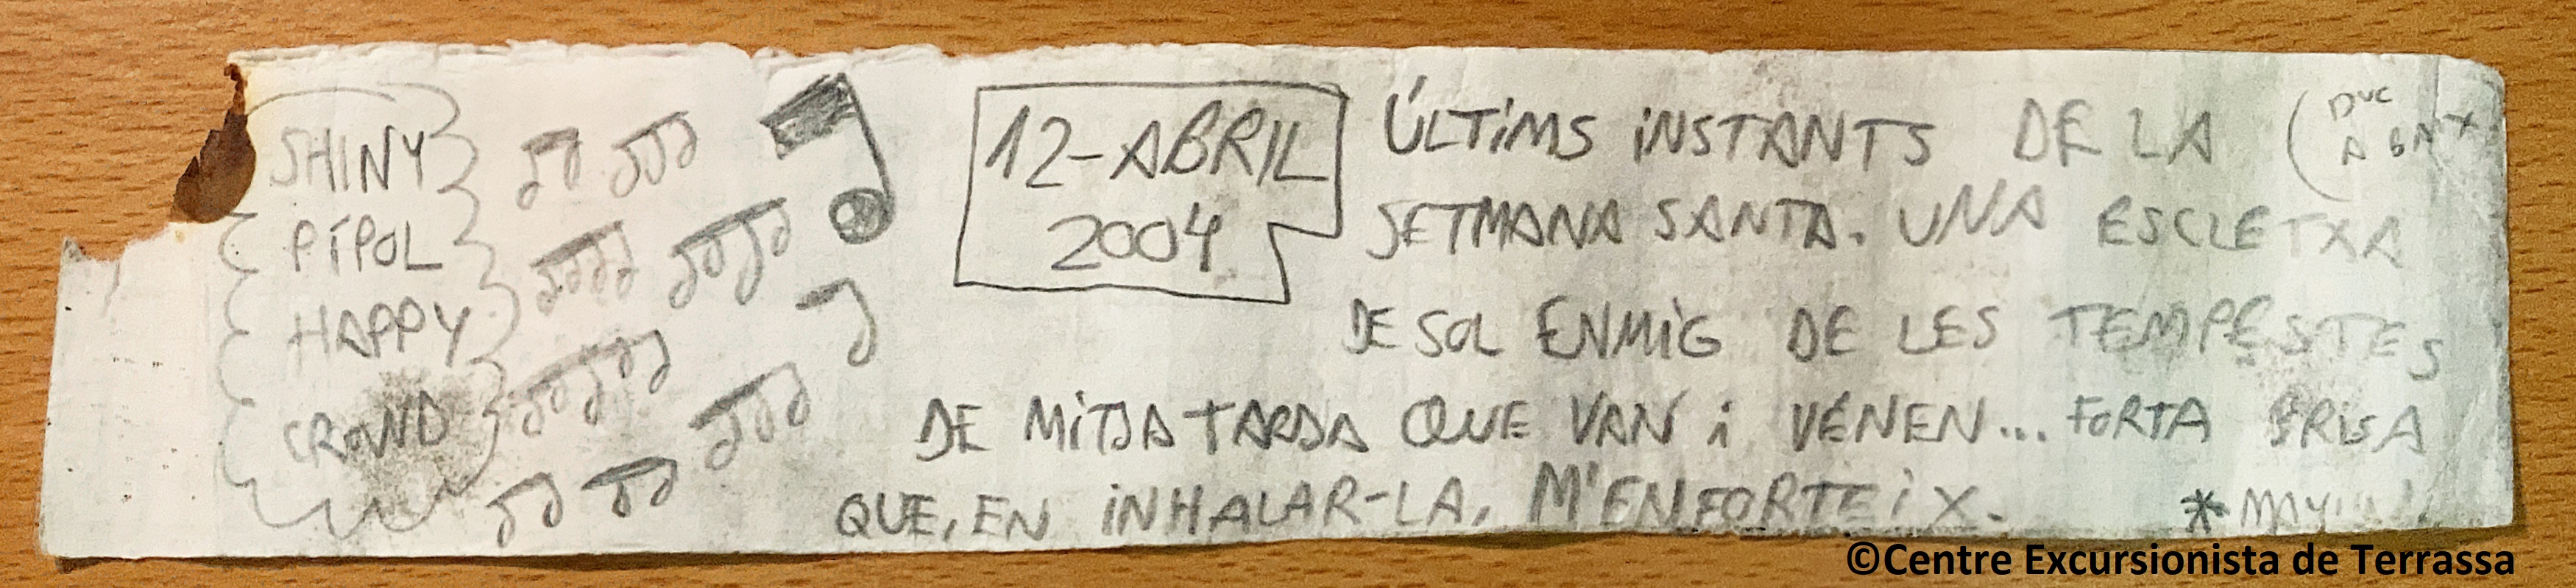 SHINY
PÍPOL
HAPPY
CROWD
12-ABRIL
2004
ÚLTIMS INSTANTS DE LA
SETMANA SANTA. UNA ESCLETXA
DE SOL ENMIG DE LES TEMPESTES
DE MITJA TARDA QUE VAN I VÉNEN... FORTA BRISA
QUE, EN INHALAR-LA, M'ENFORTEIX.
DUC
A
©Centre Excursionista de Terrassa